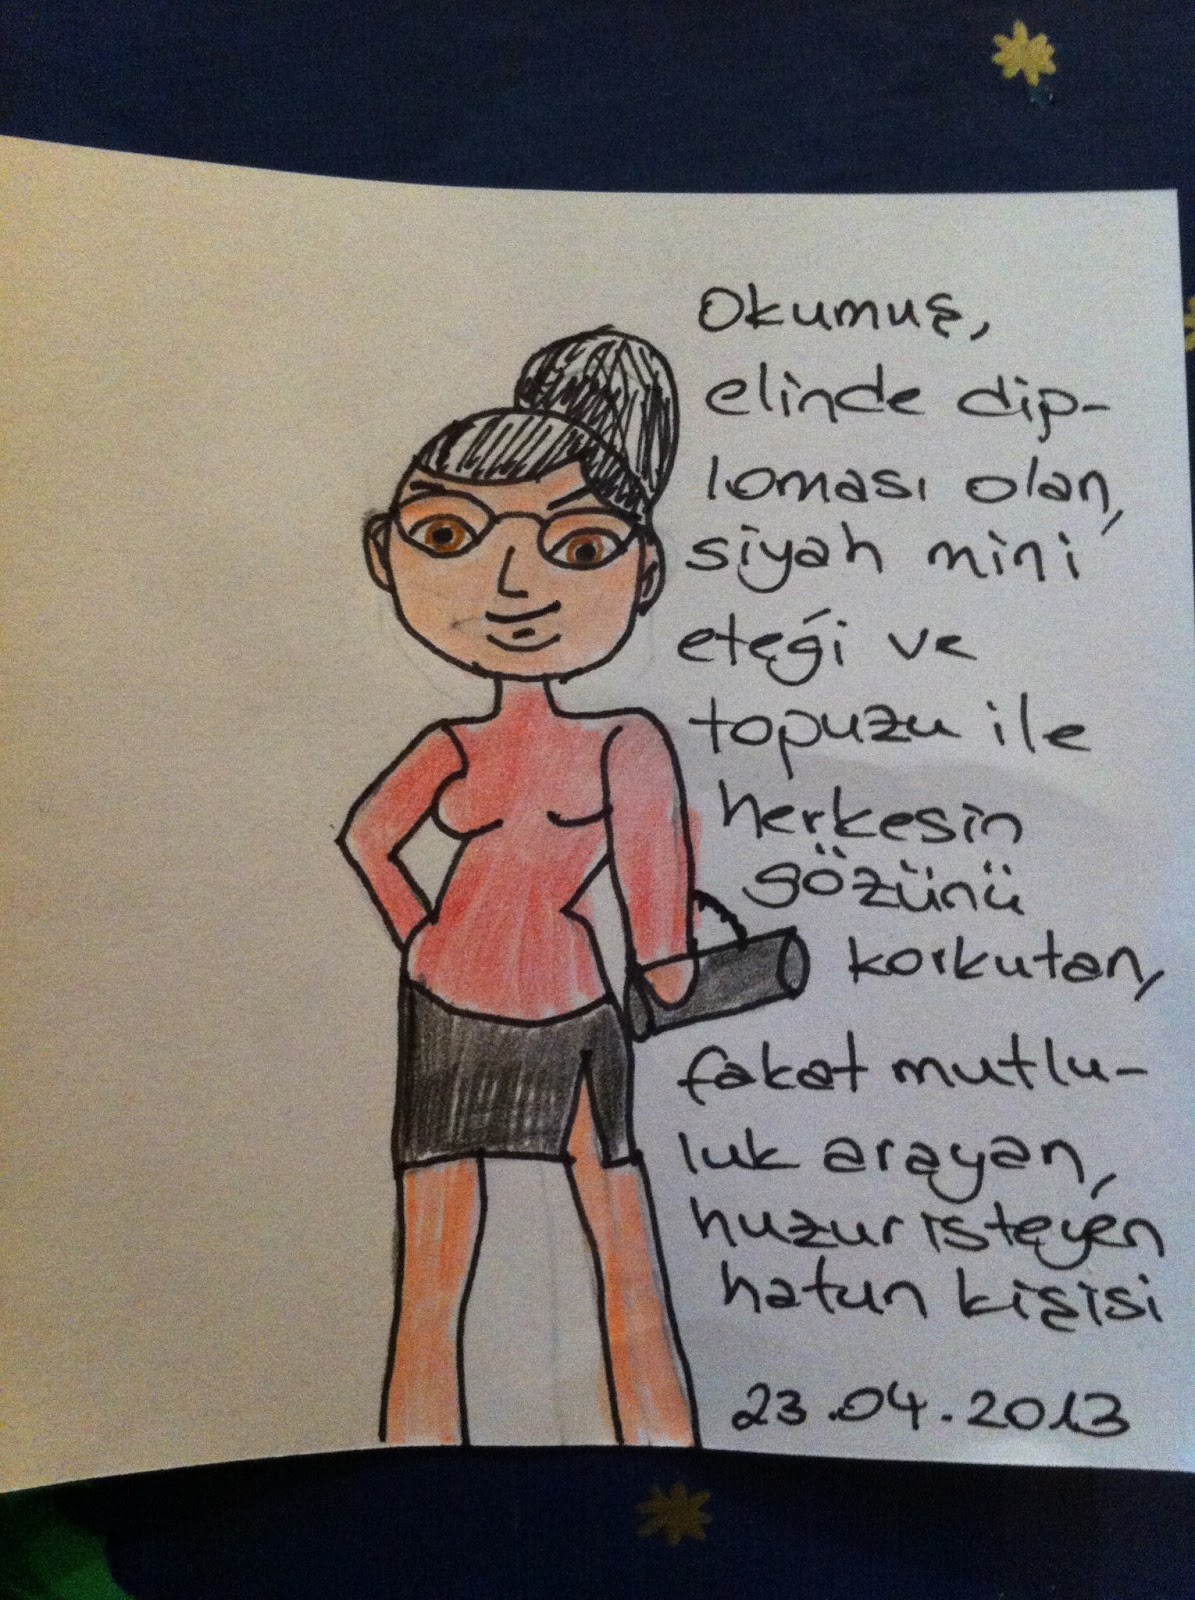 Okumuş,
elinde dip-
loması olan,
siyah mini
eteği ve
topuzu ile
herkesin
gözünü
korkutan,
fakat mutlu-
luk arayan,
huzur isteyen
hatun kişisi
23.04.2013